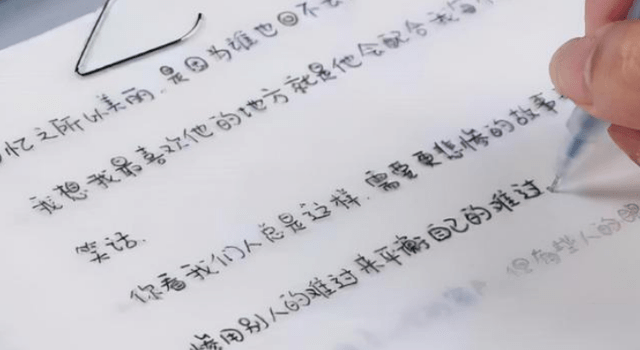 忆之所以美丽.是因为谁也回不去
我想我最喜欢他的地方就是他会配合我
笑话.
你看我们人总是这样.需要更悲惨的故事
惨用别人的难过来平衡自己的难过.
但有些人的